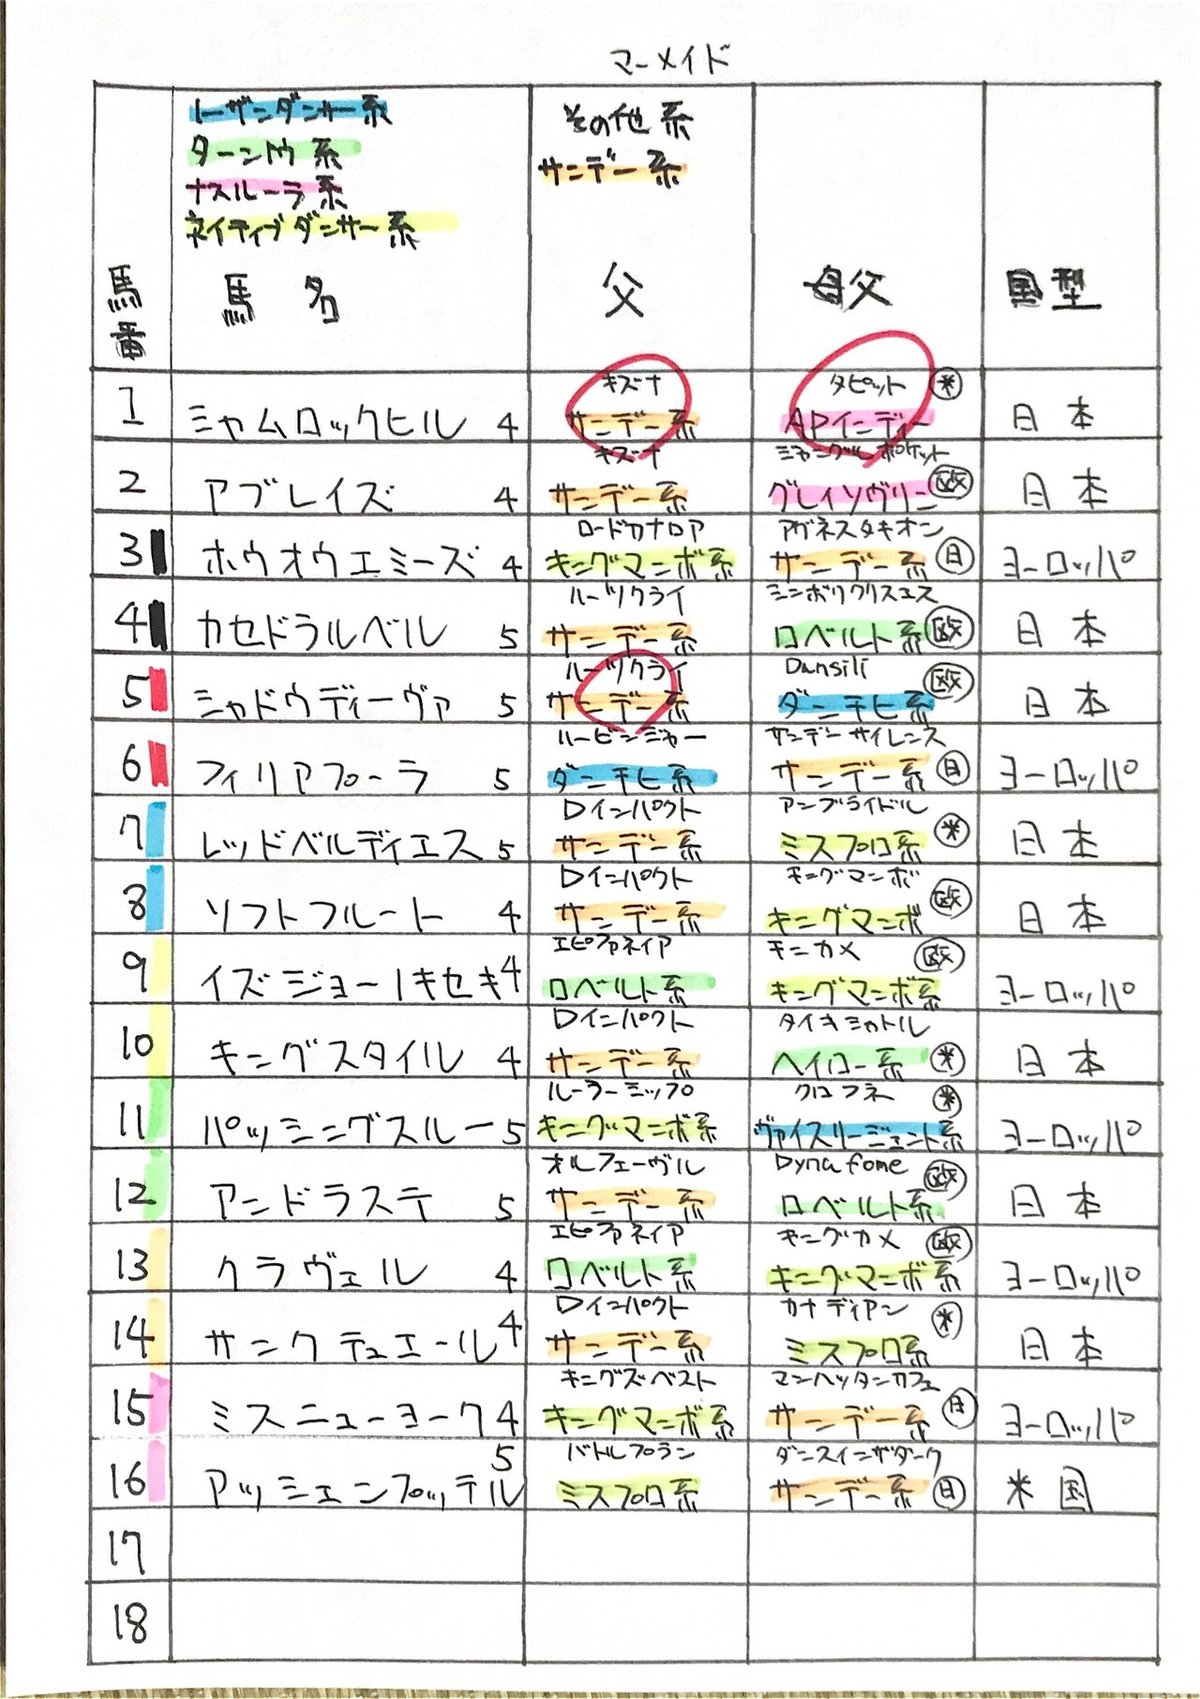 マーメイド
ノーザンダンサー系
ターントウ系
ナスルーラ系
ネイティブダンサー系
その他系
サンデー系
馬番 馬名 父 母父 国型
1 シャムロックヒル 4 キズナ サンデー系 タピット APインディー 米 日本
2 アブレイズ 4 キズナ サンデー系 ジャングルポケット グレイソヴリン 欧 日本
3 ホウオウエミーズ 4 ロードカナロア キングマンボ系 アグネスタキオン サンデー系 日 ヨーロッパ
4 カセドラルベル 5 ハーツクライ サンデー系 シンボリクリスエス ロベルト系 欧 日本
5 シャドウディーヴァ 5 ハーツクライ サンデー系 Dansili ダンチヒ系 欧 日本
6 フィリアプーラ 5 ハービンジャー ダンチヒ系 サンデーサイレンス サンデー系 日 ヨーロッパ
7 レッドベルディエス 5 Dインパクト サンデー系 アンブライドル ミスプロ系 米 日本
8 ソフトフルート 4 Dインパクト サンデー系 キングマンボ キングマンボ 欧 日本
9 イズジョーノキセキ 4 エピファネイア ロベルト系 キンカメ キングマンボ系 欧 ヨーロッパ
10 キングスタイル 4 Dインパクト サンデー系 タイキシャトル ヘイロー系 米 日本
11 パッシングスルー 5 ルーラーシップ キングマンボ系 クロフネ ヴァイスリージェント系 米 ヨーロッパ
12 アンドラステ 5 オルフェーヴル サンデー系 Dyna fome ロベルト系 欧 日本
13 クラヴェル 4 エピファネイア ロベルト系 キングカメ キングマンボ系 欧 ヨーロッパ
14 サンクテュエール 4 Dインパクト サンデー系 カナディアン ミスプロ系 米 日本
15 ミスニューヨーク 4 キングズベスト キングマンボ系 マンハッタンカフェ サンデー系 日 ヨーロッパ
16 アッシェンプッテル 5 バトルプラン ミスプロ系 ダンスインザダーク サンデー系 日 米国
17
18